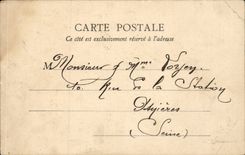 CARTE POSTALE
Ce côté est exclusivement réservé à l'adresse
M Monsieur & Mme Vozen
10 Rue de la Station
Asnières
(Seine)